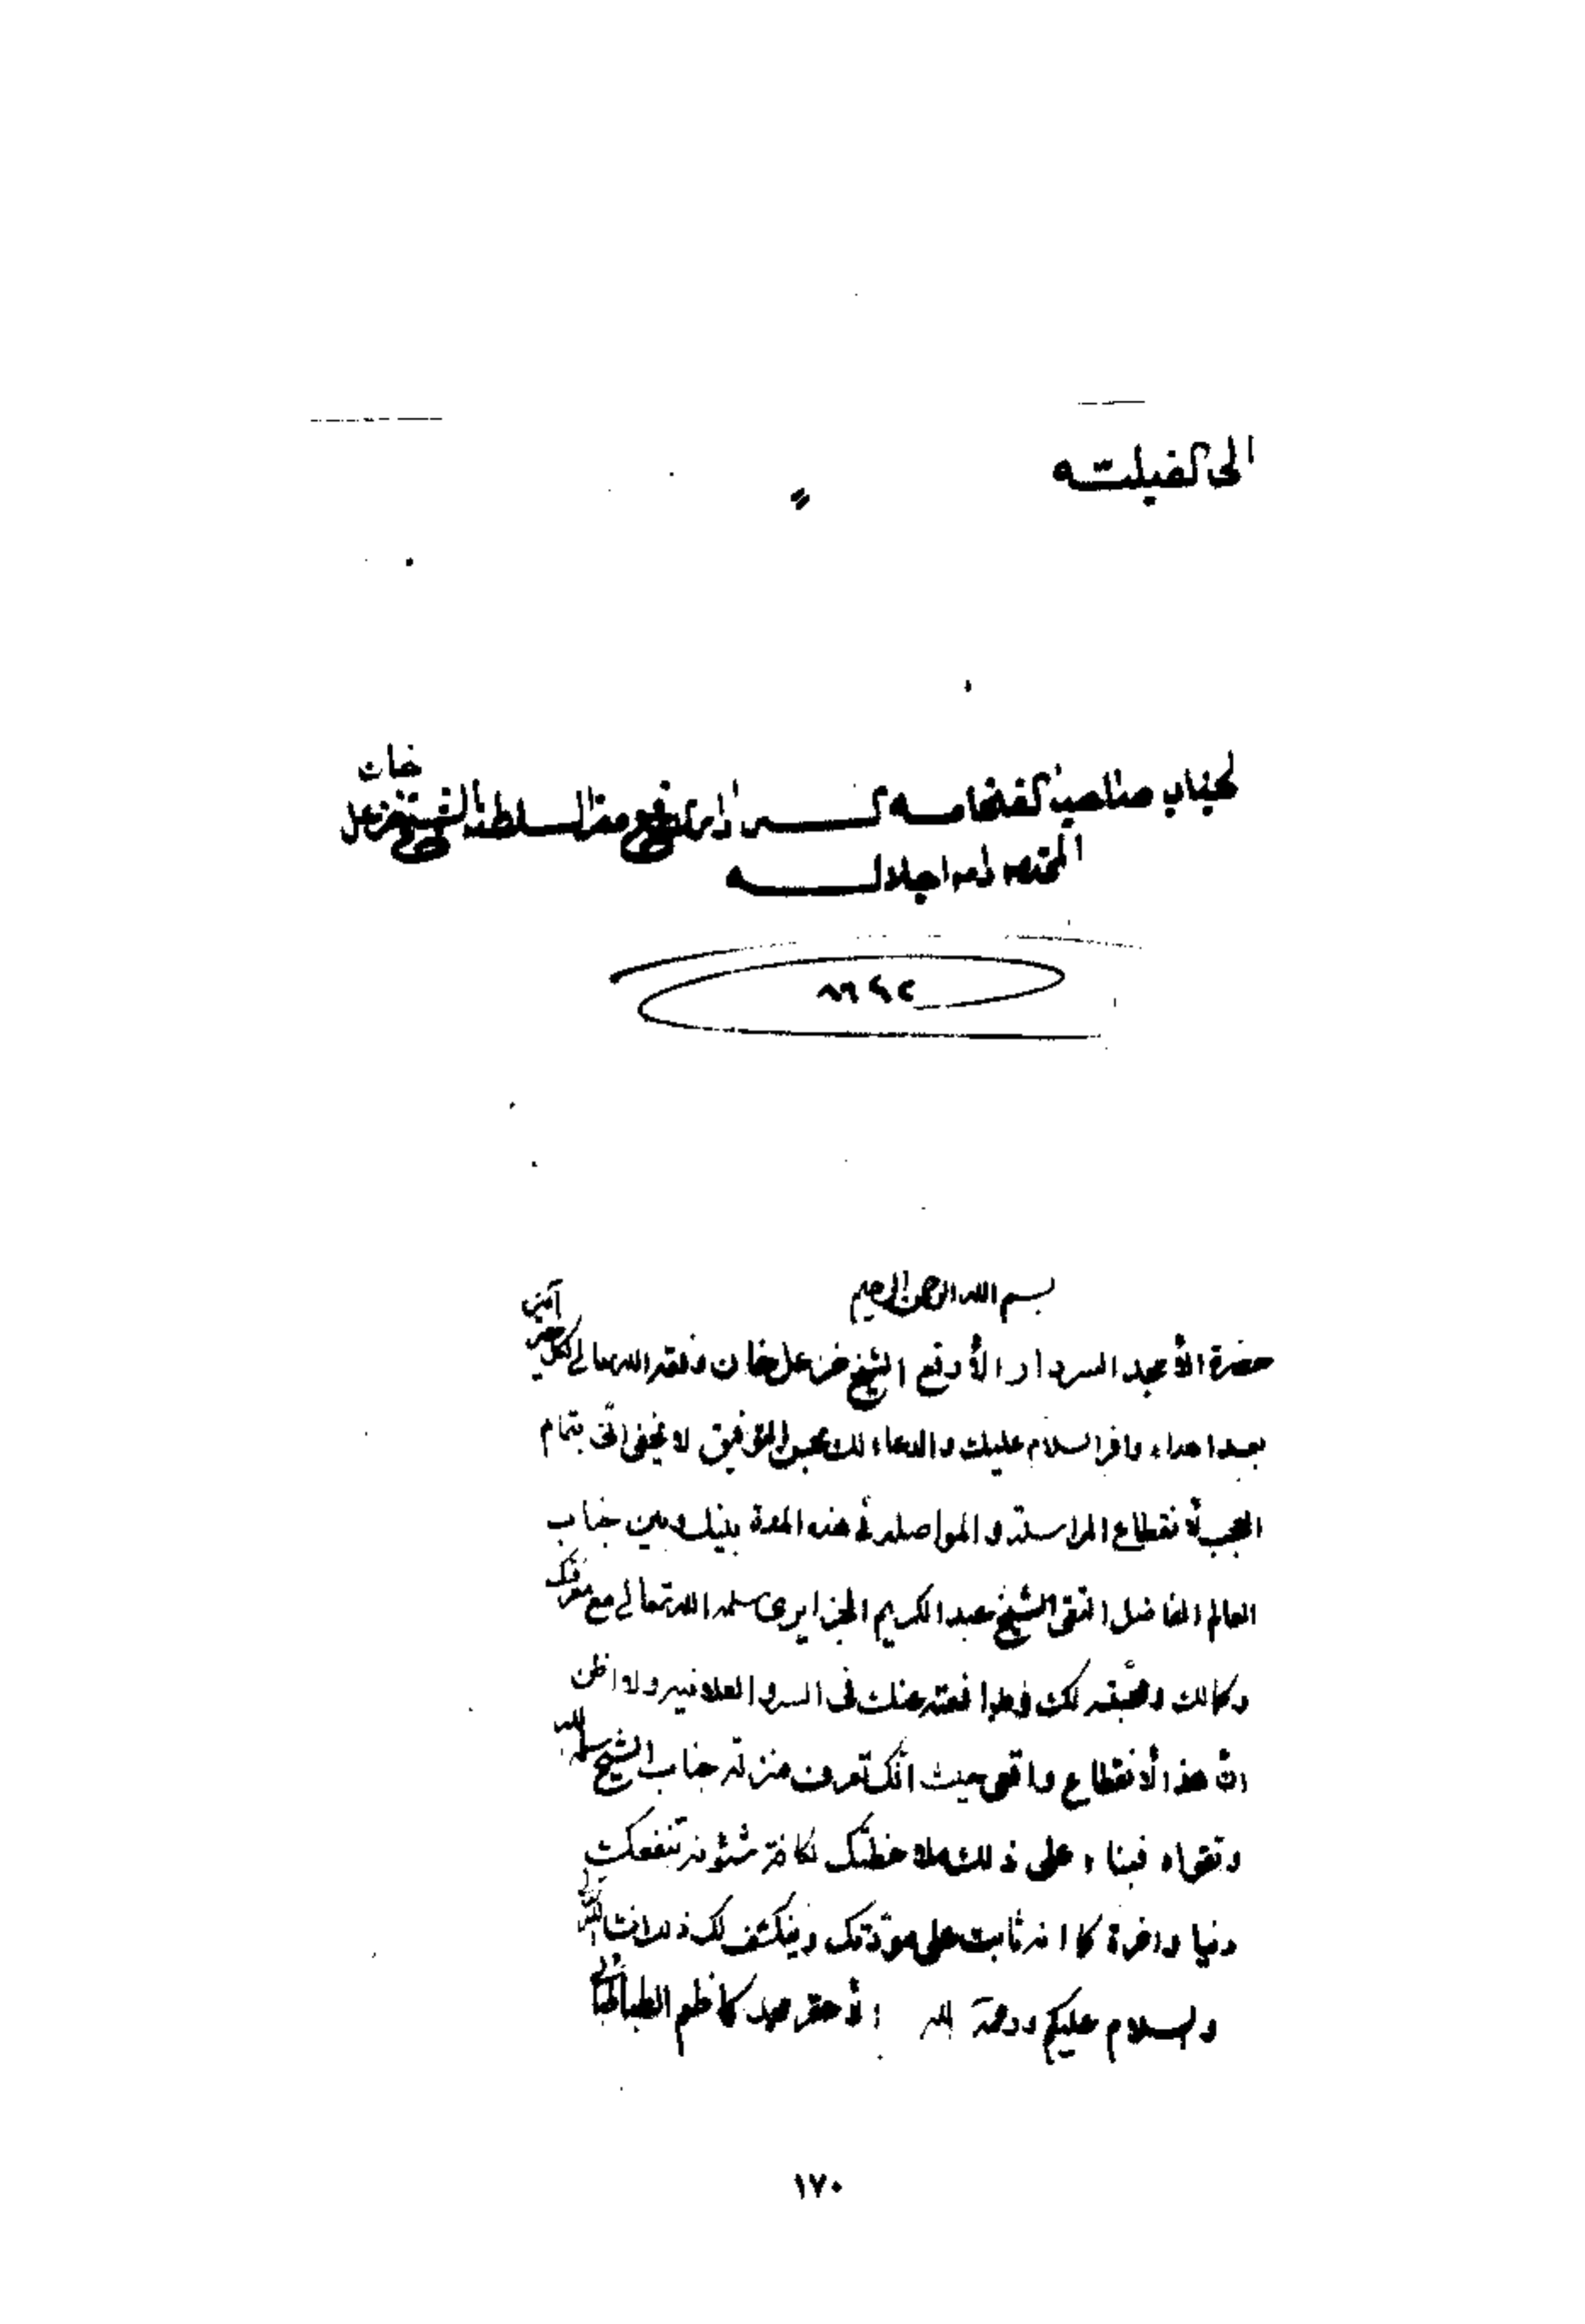 الى الفيلية
لجناب صاحب الفخامة السردار ارفع معز السلطنة الشيخ خزعل
خان
المحترم دام اجلاله
٨٦٤٢
بسم الله الرحمن الرحيم
حضرة الأمجد السردار الأرفع الشيخ خزعل خان وفقه الله تعالى لكل خير
آمين
بعد اهداء وافر السلام عليك والدعاء لك بحسن التوفيق لا يخفى اني بتمام
العجب لأنقطاع المراسلة والمواصلة في هذه المدة بينك وبين جناب
العالم الفاضل التقي الشيخ عبد الكريم الجزايري سلمه الله تعالى مع معرفتك
وكمالك ومحبته لك ومدافعته عنك في السر والعلانية ولا اظن
ان هذا الأنقطاع واقعي حيث انك تعرف منزلة جناب الشيخ سلمه الله
وتقواه فبناء على ذلك ملاحظتك لكافة شئونه تنفعك
دنيا واخرة كما انه ثابت على مودتك وينكشف لك ذلك
والسلام عليكم ورحمة الله الأحقر محمد كاظم الطباطبائي
١٧٠